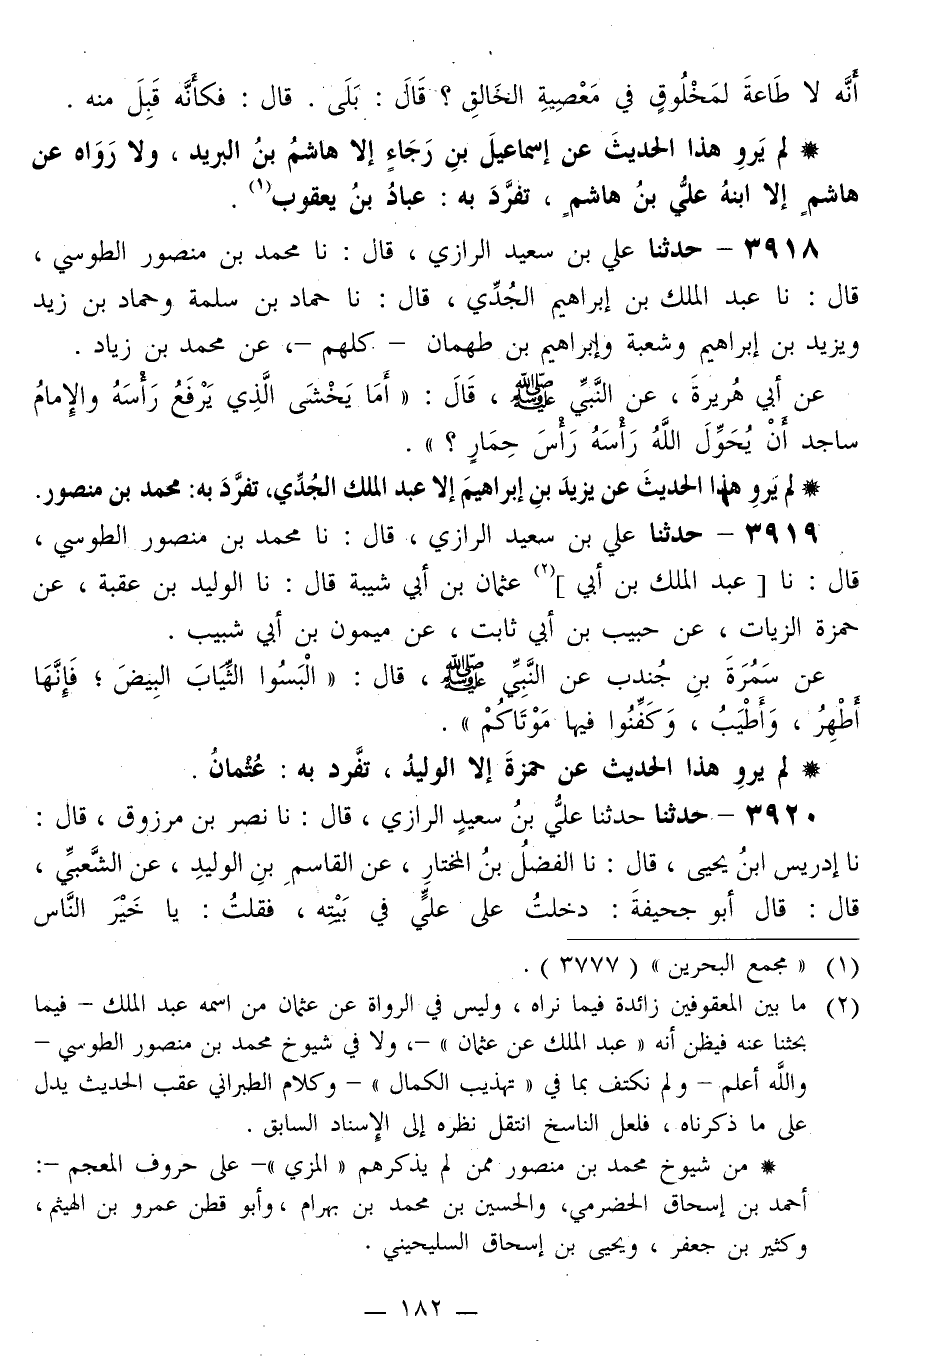 أَنَّه لا طَاعةَ لمَخْلُوقٍ في مَعْصِيةِ الخَالقِ ؟ قَالَ : بَلَى . قال : فكأنَّه قَبِلَ منه .
* لم يَروِ هذا الحديثَ عن إسماعيلَ بنِ رَجَاءٍ إلا هاشمُ بنُ البريد ، ولا رَوَاه عن
هاشمٍ إلا ابنهُ عليُّ بنُ هاشمٍ ، تفرَّدَ به : عبادُ بنُ يعقوب(١) .
٣٩١٨ – حدثنا علي بن سعيد الرازي ، قال : نا محمد بن منصور الطوسي ،
قال : نا عبد الملك بن إبراهيم الجُدِّي ، قال : نا حماد بن سلمة وحماد بن زيد
ويزيد بن إبراهيم وشعبة وإبراهيم بن طهمان – كلهم –، عن محمد بن زياد .
عن أبي هُريرةَ ، عن النَّبيِّ ﷺ ، قَالَ : « أَمَا يَخْشَى الَّذِي يَرْفَعُ رَأْسَهُ والإِمامُ
ساجد أَنْ يُحَوِّلَ اللَّهُ رَأْسَهُ رَأْسَ حِمَارٍ ؟ » .
* لم يَروِ هذا الحديثَ عن يزيدَ بنِ إبراهيمَ إلا عبد الملك الجُدِّي، تفرَّدَ به: محمد بن منصور.
٣٩١٩ – حدثنا علي بن سعيد الرازي ، قال : نا محمد بن منصور الطوسي ،
قال : نا [ عبد الملك بن أبي ](٢) عثمان بن أبي شيبة قال : نا الوليد بن عقبة ، عن
حمزة الزيات ، عن حبيب بن أبي ثابت ، عن ميمون بن أبي شبيب .
عن سَمُرَةَ بنِ جُندب عن النَّبيِّ ﷺ ، قال : « الْبَسُوا الثِّيَابَ البِيضَ ؛ فَإِنَّهَا
أَطْهرُ ، وَأَطْيَبُ ، وَكَفِّنُوا فيها مَوْتَاكُمْ » .
* لم يروِ هذا الحديث عن حمزةَ إلا الوليدُ ، تفَّرد به : عُثْمانُ .
٣٩٢٠ – حدثنا حدثنا عليُّ بنُ سعيدٍ الرازي ، قال : نا نصر بن مرزوق ، قال :
نا إدريس ابنُ يحيى ، قال : نا الفضلُ بنُ المختارِ ، عن القاسمِ بنِ الوليدِ ، عن الشَّعبيِّ ،
قال : قال أبو جحيفةَ : دخلتُ على عليٍّ في بَيْتِه ، فقلتُ : يا خَيْرَ النَّاس
(١) « مجمع البحرين » ( ٣٧٧٧ ) .
(٢) ما بين المعقوفين زائدة فيما نراه ، وليس في الرواة عن عثمان من اسمه عبد الملك – فيما
بحثنا عنه فيظن أنه « عبد الملك عن عثمان » –، ولا في شيوخ محمد بن منصور الطوسي –
واللَّه أعلم – ولم نكتف بما في « تهذيب الكمال » – وكلام الطبراني عقب الحديث يدل
على ما ذكرناه ، فلعل الناسخ انتقل نظره إلى الإسناد السابق .
* من شيوخ محمد بن منصور ممن لم يذكرهم « المزي »– على حروف المعجم –:
أحمد بن إسحاق الحضرمي، والحسين بن محمد بن بهرام ، وأبو قطن عمرو بن الهيثم ،
وكثير بن جعفر ، ويحيى بن إسحاق السليحيني .
– ١٨٢ –